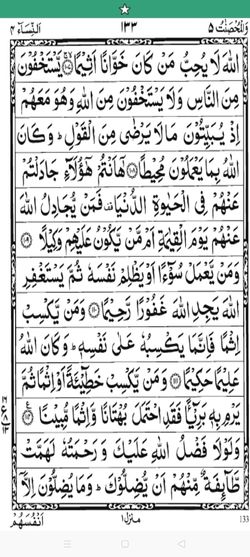 وَالْمُحْصَنٰتُ ٥ ١٣٣ اَلنِّسَآءِ ٤
اللّٰهَ لَا يُحِبُّ مَنْ كَانَ خَوَّانًا اَثِيْمًا ۙ﴿١٠٧﴾ يَّسْتَخْفُوْنَ
مِنَ النَّاسِ وَلَا يَسْتَخْفُوْنَ مِنَ اللّٰهِ وَهُوَ مَعَهُمْ
اِذْ يُبَيِّتُوْنَ مَا لَا يَرْضٰى مِنَ الْقَوْلِ ؕ وَكَانَ
اللّٰهُ بِمَا يَعْمَلُوْنَ مُحِيْطًا ﴿١٠٨﴾ هٰۤاَنْتُمْ هٰۤؤُلَآءِ جَادَلْتُمْ
عَنْهُمْ فِى الْحَيٰوةِ الدُّنْيَا فَمَنْ يُّجَادِلُ اللّٰهَ
عَنْهُمْ يَوْمَ الْقِيٰمَةِ اَمْ مَّنْ يَّكُوْنُ عَلَيْهِمْ وَكِيْلًا ﴿١٠٩﴾
وَمَنْ يَّعْمَلْ سُوْٓءًا اَوْ يَظْلِمْ نَفْسَهٗ ثُمَّ يَسْتَغْفِرِ
اللّٰهَ يَجِدِ اللّٰهَ غَفُوْرًا رَّحِيْمًا ﴿١١٠﴾ وَمَنْ يَّكْسِبْ
اِثْمًا فَاِنَّمَا يَكْسِبُهٗ عَلٰى نَفْسِهٖ ؕ وَكَانَ اللّٰهُ
عَلِيْمًا حَكِيْمًا ﴿١١١﴾ وَمَنْ يَّكْسِبْ خَطِيْٓـَٔةً اَوْ اِثْمًا ثُمَّ
يَرْمِ بِهٖ بَرِيْٓــًٔا فَقَدِ احْتَمَلَ بُهْتَانًا وَّاِثْمًا مُّبِيْنًا ﴿١١٢﴾
وَلَوْلَا فَضْلُ اللّٰهِ عَلَيْكَ وَرَحْمَتُهٗ لَهَمَّتْ
طَّآئِفَةٌ مِّنْهُمْ اَنْ يُّضِلُّوْكَ ؕ وَمَا يُضِلُّوْنَ اِلَّاۤ
اَنْفُسَهُمْ منزل ١ 133